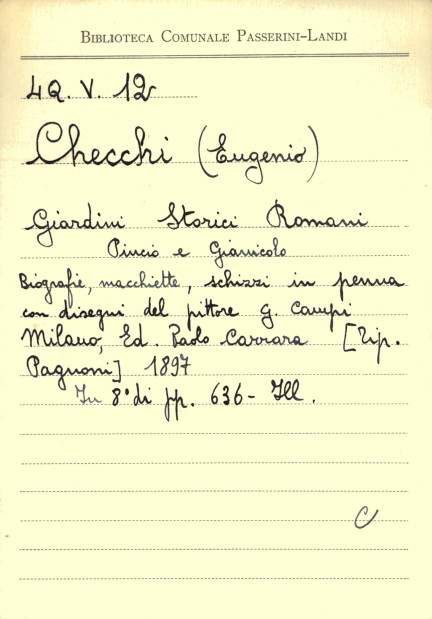 BIBLIOTECA COMUNALE PASSERINI-LANDI
4Q. V. 12
Checchi (Eugenio)
Giardini Storici Romani
Pincio e Gianicolo
Biografie, macchiette, schizzi in penna
con disegni del pittore G. Campi
Milano, Ed. Paolo Carrara [Tip.
Pagnoni] 1897
In 8° di pp. 636 - Ill.
C